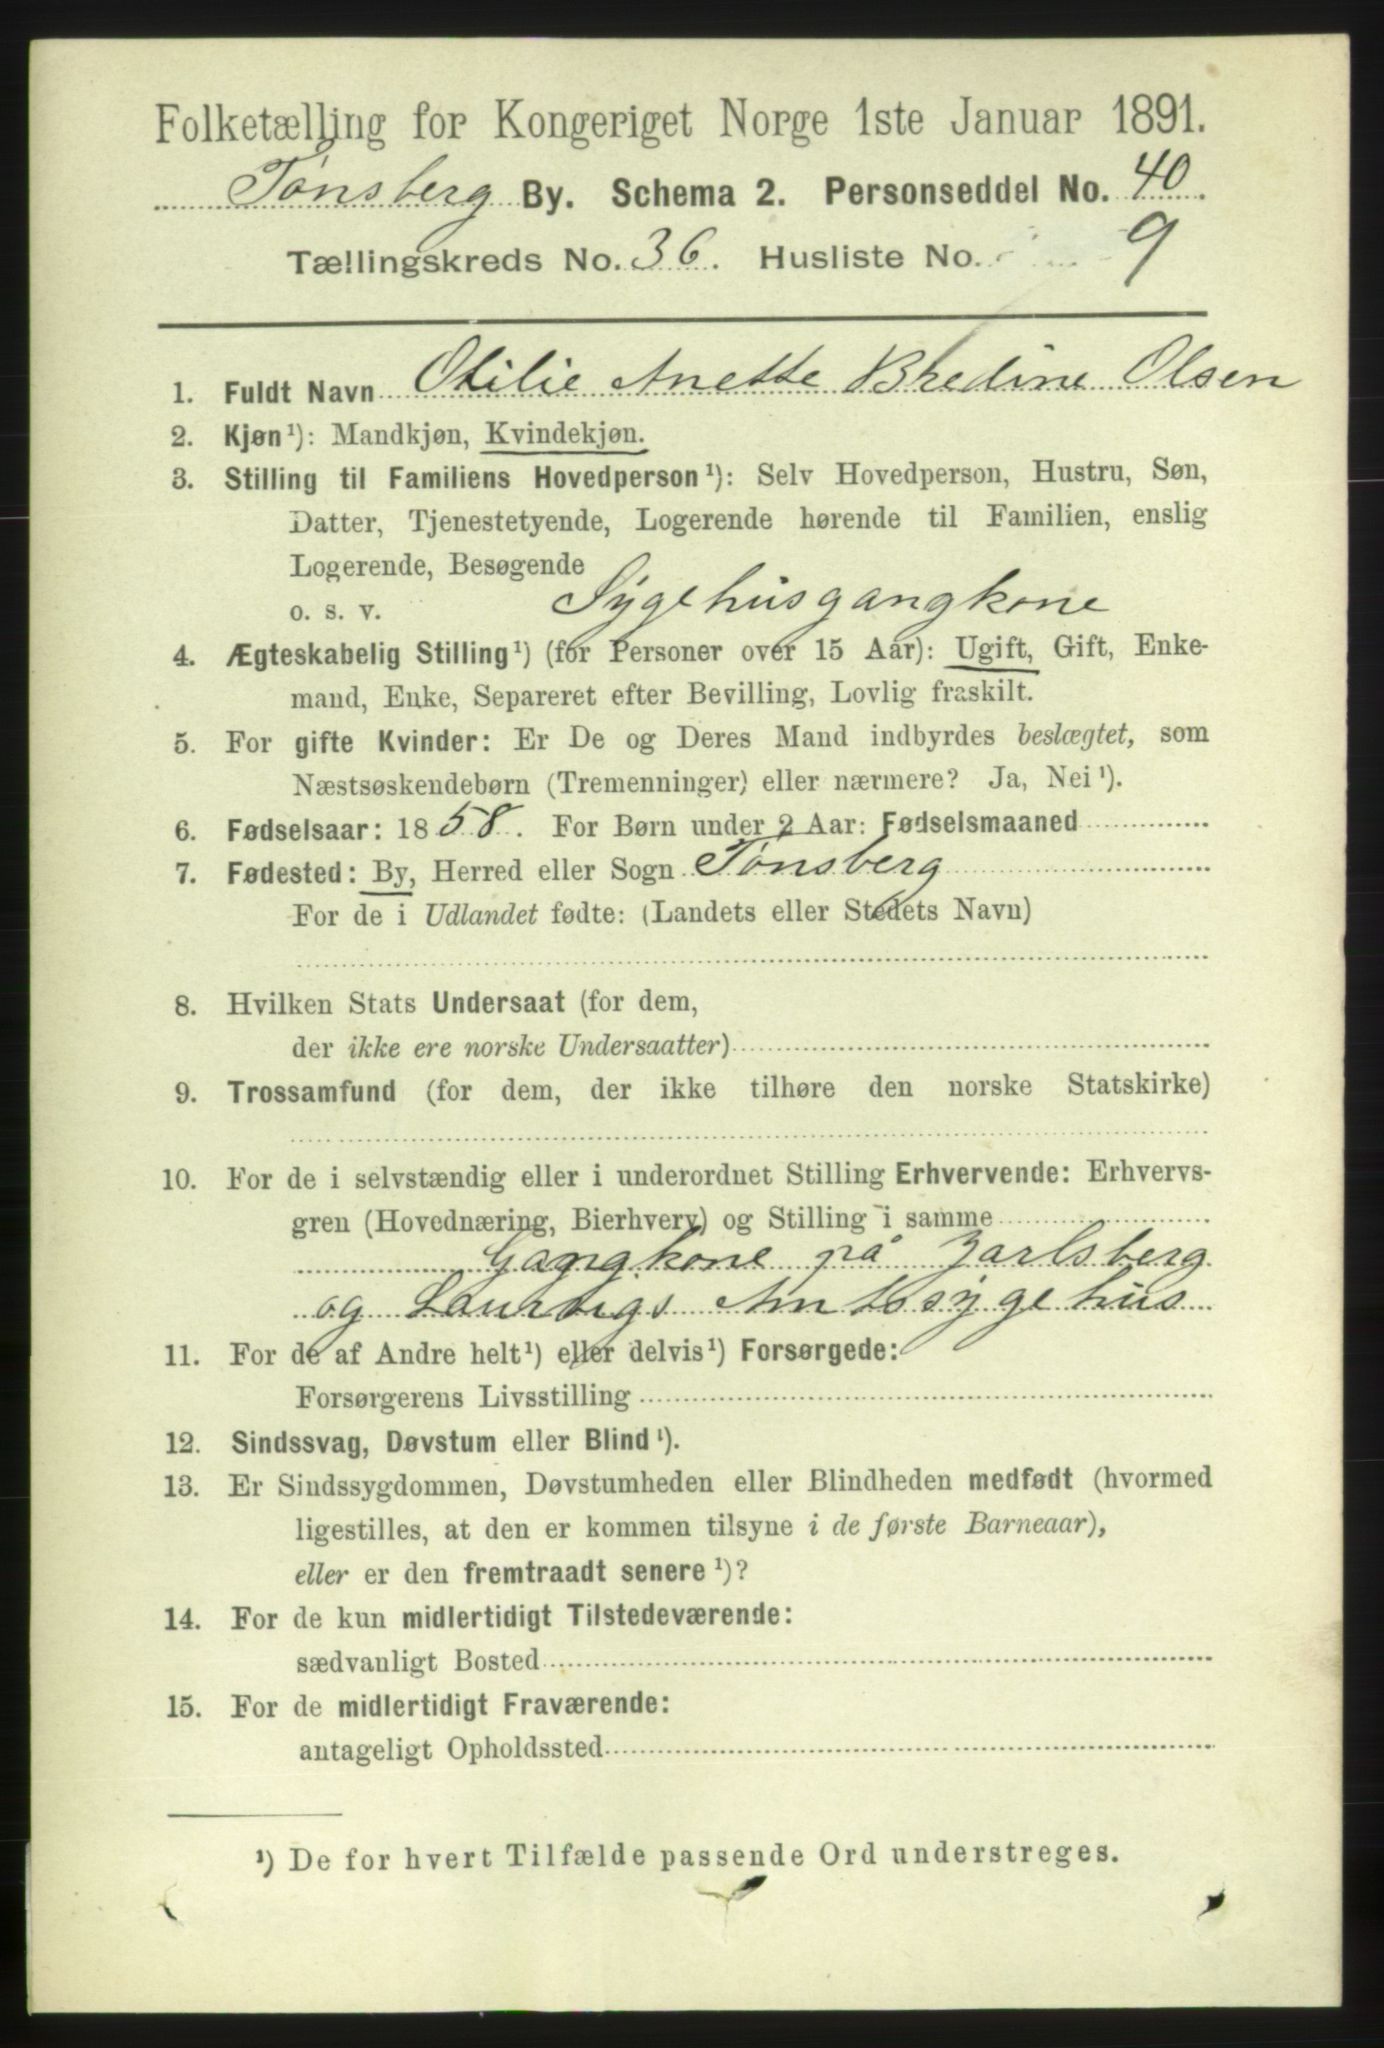 Folketælling for Kongeriget Norge 1ste Januar 1891.
Tønsberg By. Schema 2. Personseddel No. 40.
Tællingskreds No. 36. Husliste No. 9
1. Fuldt Navn Otilie Anette Bredine Olsen
2. Kjøn¹): Mandkjøn, Kvindekjøn.
3. Stilling til Familiens Hovedperson¹): Selv Hovedperson, Hustru, Søn,
Datter, Tjenestetyende, Logerende hørende til Familien, enslig
Logerende, Besøgende
o. s. v. Sygehusgangkone
4. Ægteskabelig Stilling¹) (for Personer over 15 Aar): Ugift, Gift, Enke-
mand, Enke, Separeret efter Bevilling, Lovlig fraskilt.
5. For gifte Kvinder: Er De og Deres Mand indbyrdes beslægtet, som
Næstsøskendebørn (Tremenninger) eller nærmere? Ja, Nei¹).
6. Fødselsaar: 1858. For Børn under 2 Aar: Fødselsmaaned
7. Fødested: By, Herred eller Sogn Tønsberg
For de i Udlandet fødte: (Landets eller Stedets Navn)
8. Hvilken Stats Undersaat (for dem,
der ikke ere norske Undersaatter)
9. Trossamfund (for dem, der ikke tilhøre den norske Statskirke)
10. For de i selvstændig eller i underordnet Stilling Erhvervende: Erhvervs-
gren (Hovednæring, Bierhverv) og Stilling i samme
Gangkone på Jarlsberg
og Laurvigs Amtssygehus
11. For de af Andre helt¹) eller delvis¹) Forsørgede:
Forsørgerens Livsstilling
12. Sindssvag, Døvstum eller Blind¹).
13. Er Sindssygdommen, Døvstumheden eller Blindheden medfødt (hvormed
ligestilles, at den er kommen tilsyne i de første Barneaar),
eller er den fremtraadt senere¹)?
14. For de kun midlertidigt Tilstedeværende:
sædvanligt Bosted
15. For de midlertidigt Fraværende:
antageligt Opholdssted
¹) De for hvert Tilfælde passende Ord understreges.